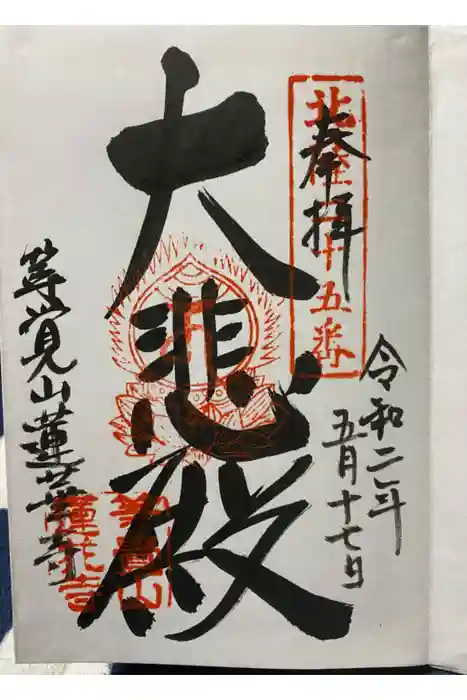 奉拝
北陸 十五番
令和二年
五月十七日
大悲殿
等覚山蓮華寺
等覺山
蓮花寺